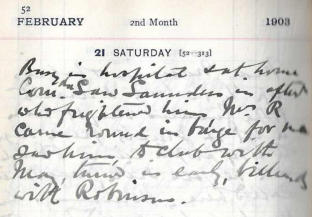 52
FEBRUARY 2nd Month 1903
21 SATURDAY [52—313]
Busy in hospital sat. home
Com. Saw Saunders in aftn
who frightened him. Mr. R
came round in for me
saw him, to club with
May, turned in early, billiards
with Robinson.